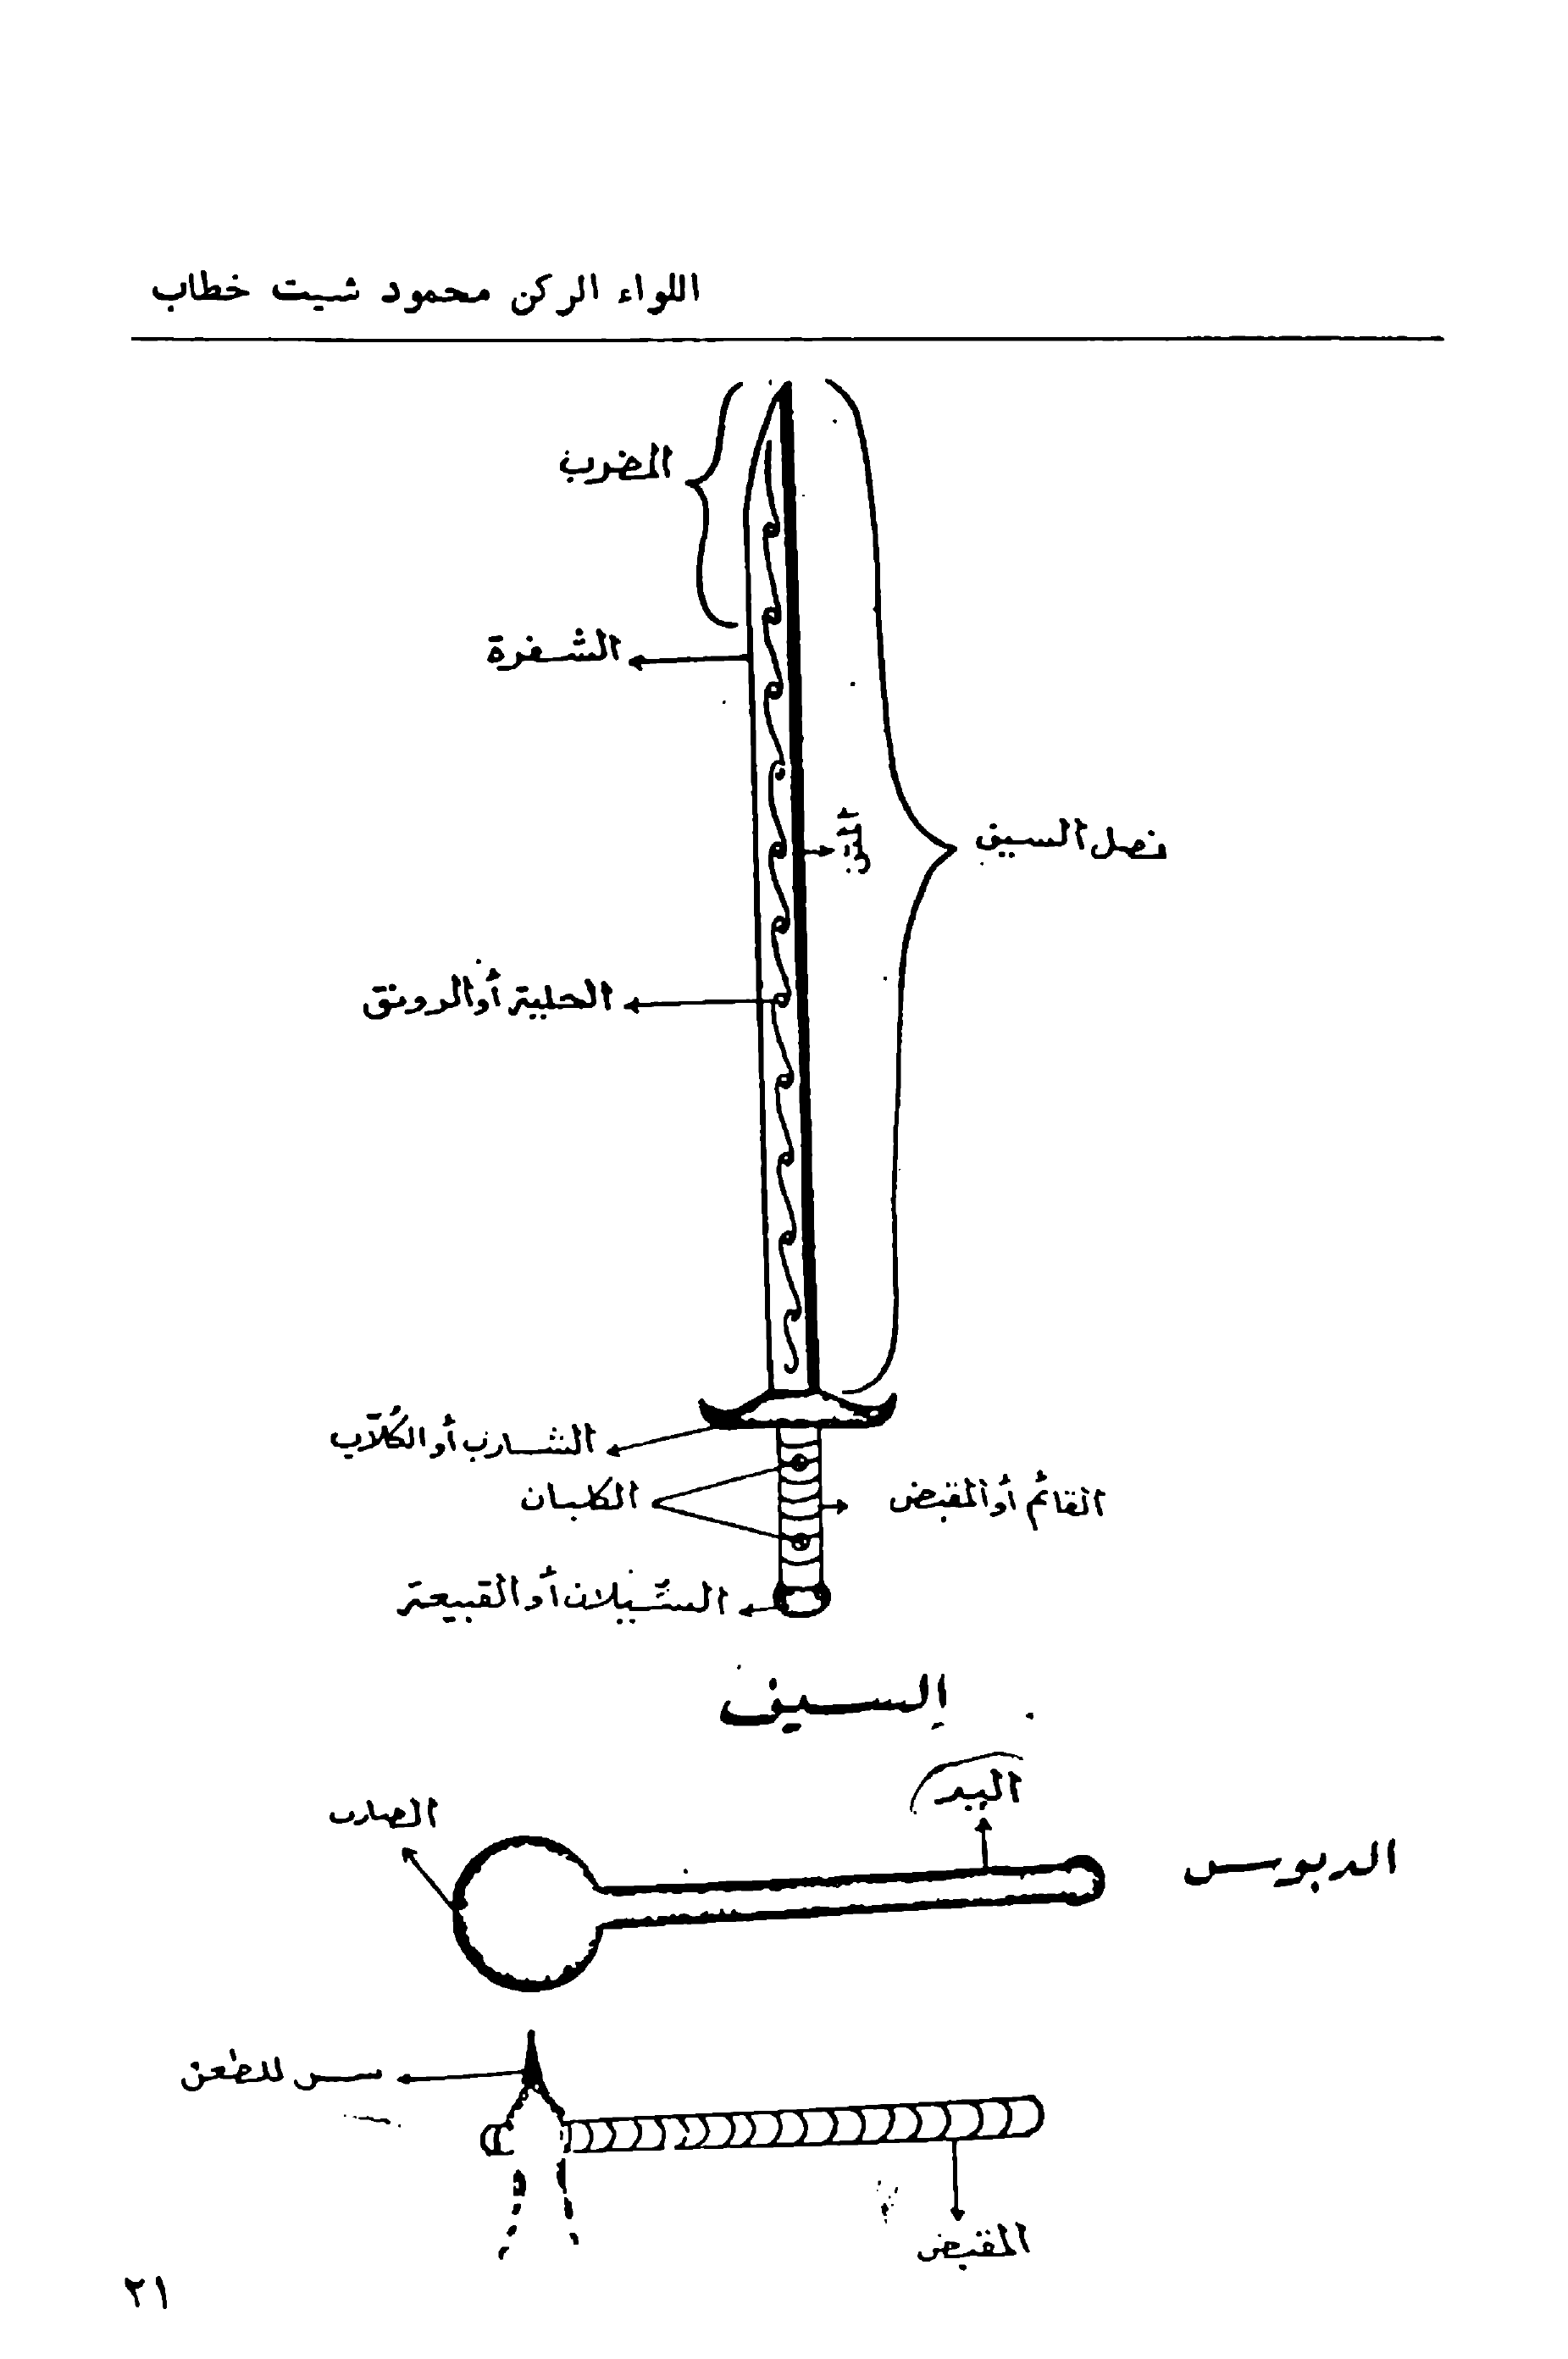 اللواء الركن محمود شيت خطاب
المضرب
الشفرة
المتن
نصل السيف
الحلية أو الرونق
الشارب أو الكُلّاب
الكلبان
القائم أو المقبض
السِّيلان أو القبيعة
السيف
اليد
الضارب
الدبوس
للطعن
المقبض
٢١